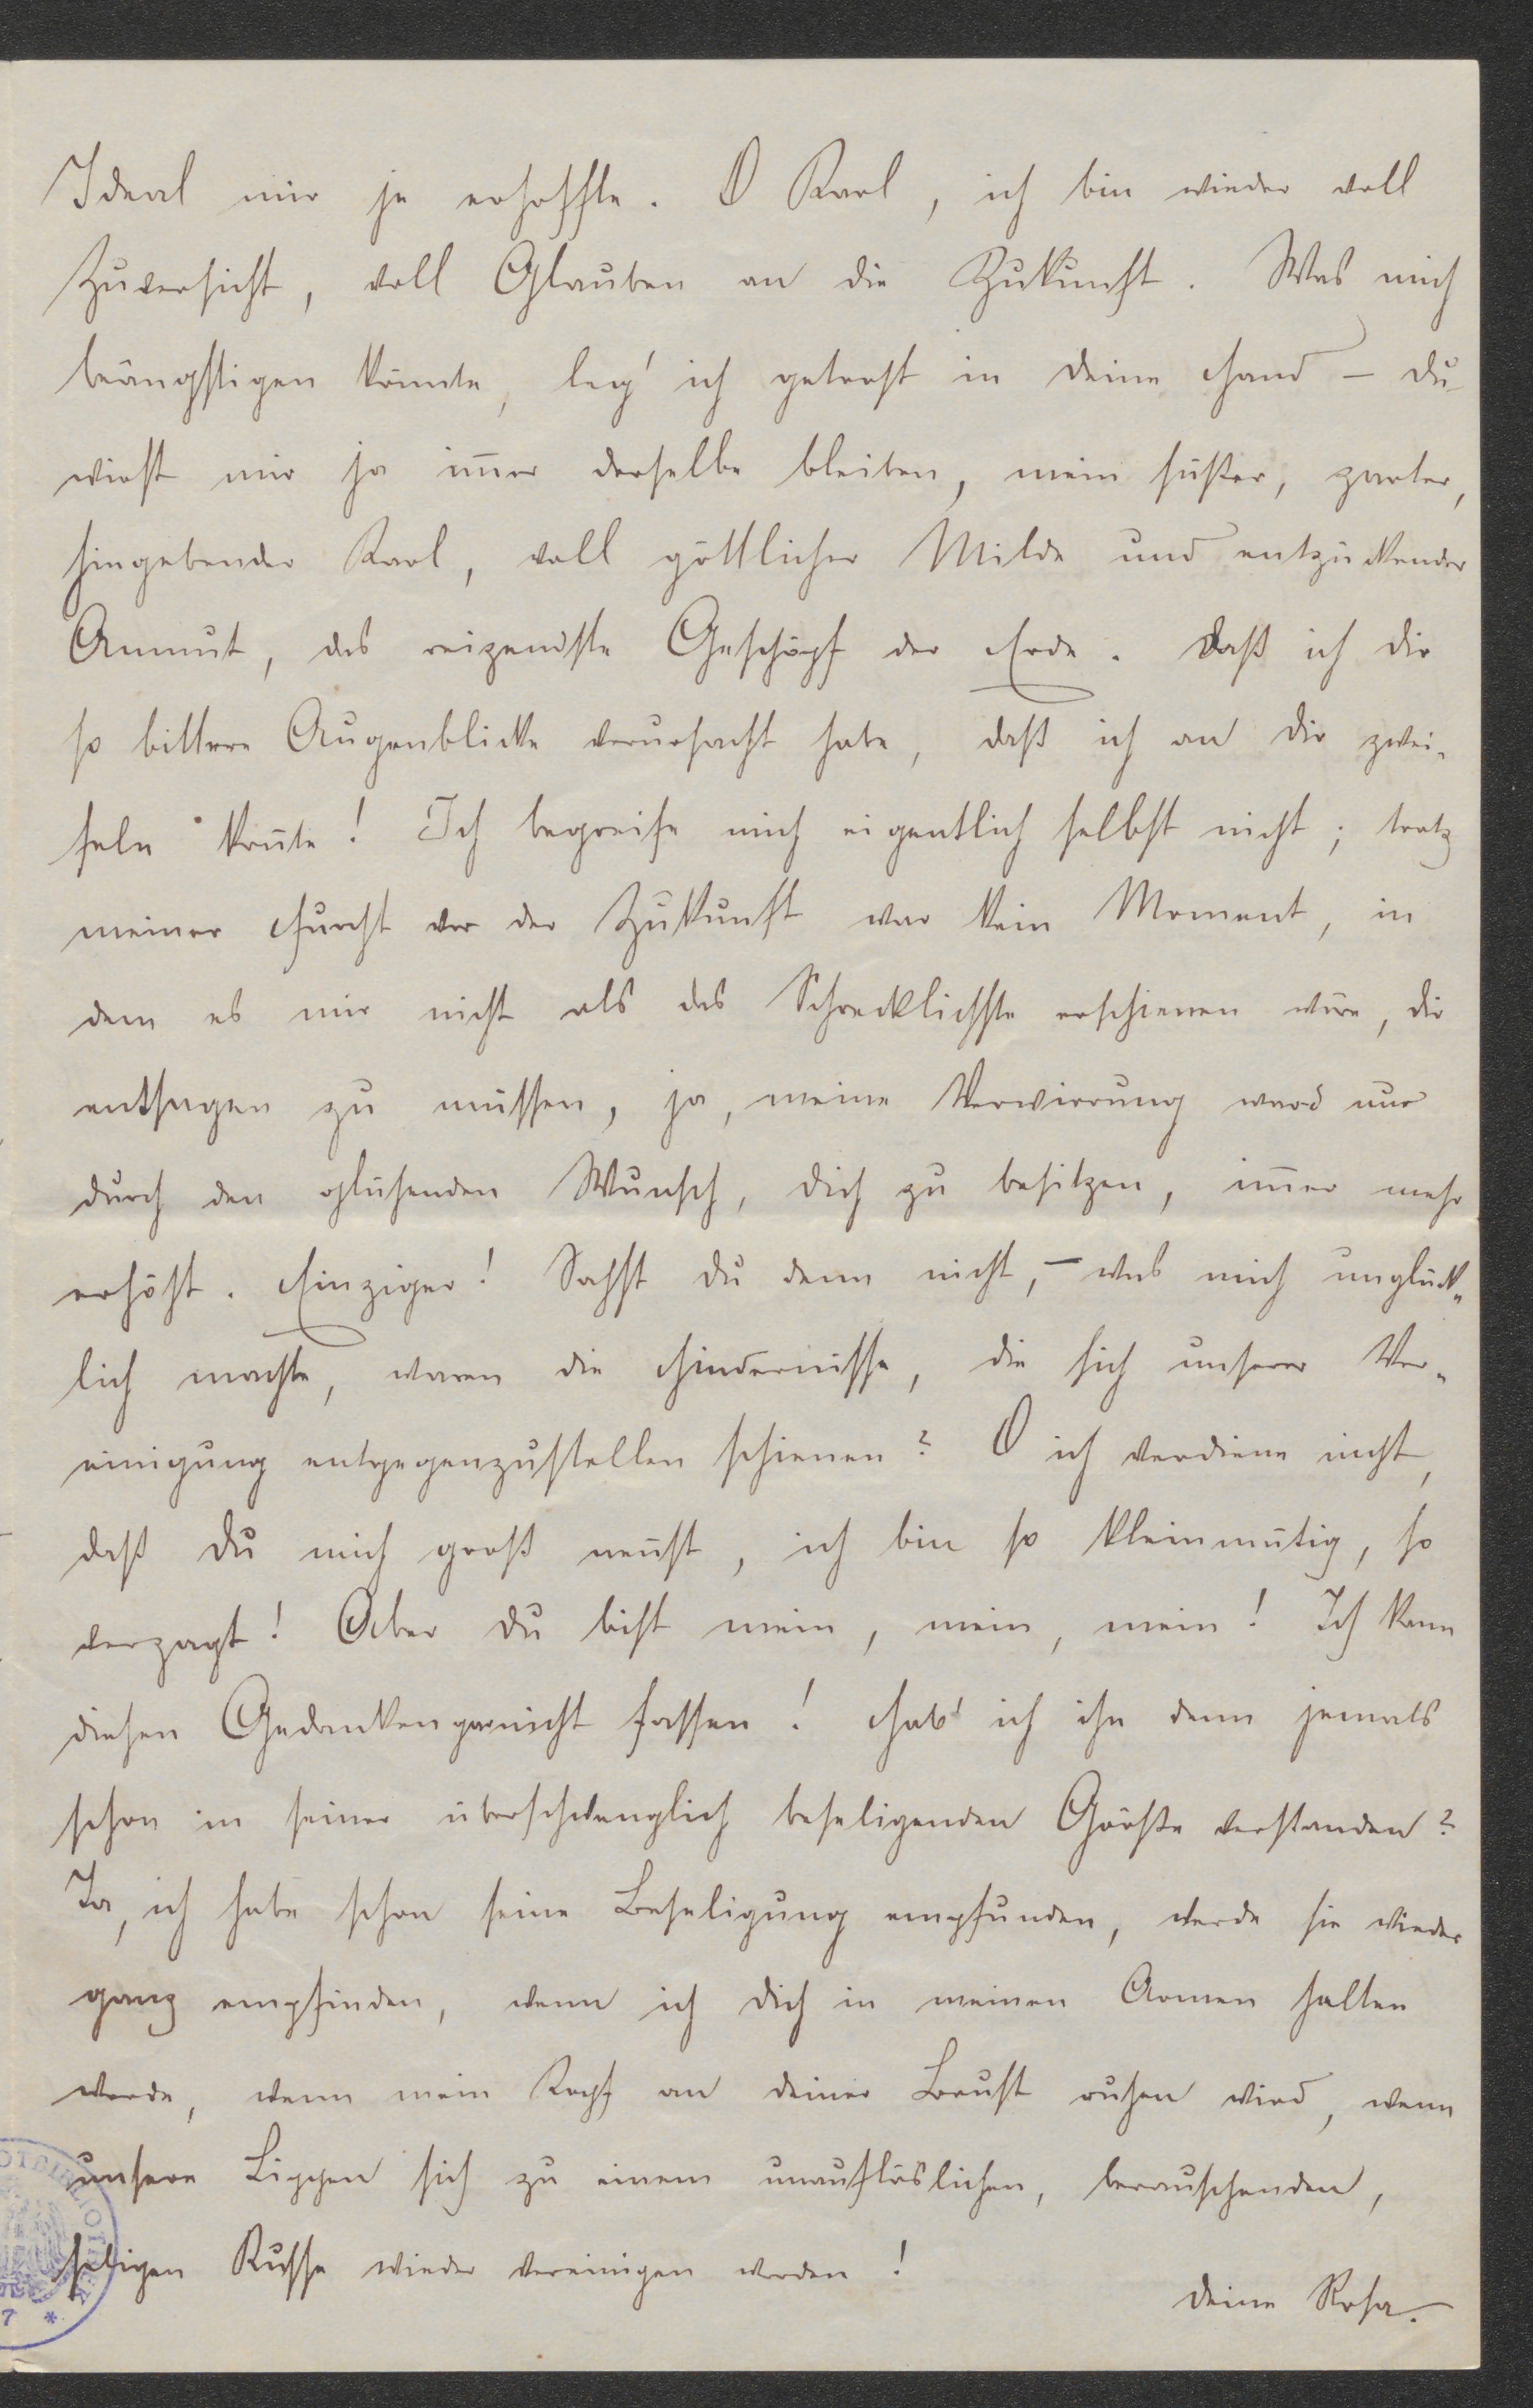 Ideal mir je erhoffte. O Karl, ich bin wieder voll
Zuversicht, voll Glauben an die Zukunft. Was mich
beängstigen könnte, leg' ich getrost in deine Hand – du
wirst mir ja im̄er derselbe bleiben, mein süßer, zarter,
hingebender Karl, voll göttlicher Milde und entzückender
Anmut, das reizendste Geschöpf der Erde. Daß ich dir
so bittere Augenblicke verursacht habe, daß ich an dir zwei-
feln kon̄te! Ich begreife mich eigentlich selbst nicht; trotz
meiner Furcht vor der Zukunft war kein Moment, in
dem es mir nicht als das Schrecklichste erschienen wäre, dir
entsagen zu müssen, ja, meine Verwirrung ward nur
durch den glühenden Wunsch, dich zu besitzen, im̄er mehr
erhöht. Einziger! Sahst du denn nicht, – was mich unglück-
lich machte, waren die Hindernisse, die sich unserer Ver-
einigung entgegenzustellen schienen? O ich verdiene nicht,
daß du mich groß nen̄st, ich bin so kleinmütig, so
verzagt! Aber du bist mein, mein, mein! Ich kann
diesen Gedanken garnicht fassen! Hab' ich ihn denn jemals
schon in seiner überschwenglich beseligenden Größe verstanden?
Ja, ich habe schon seine Beseligung empfunden, werde sie wieder
ganz empfinden, wenn ich dich in meinen Armen halten
werde, wenn mein Kopf an deiner Brust ruhen wird, wenn
unsere Lippen sich zu einem unauflöslichen, berauschenden,
seligen Kusse wieder vereinigen werden!
Deine Rosa.